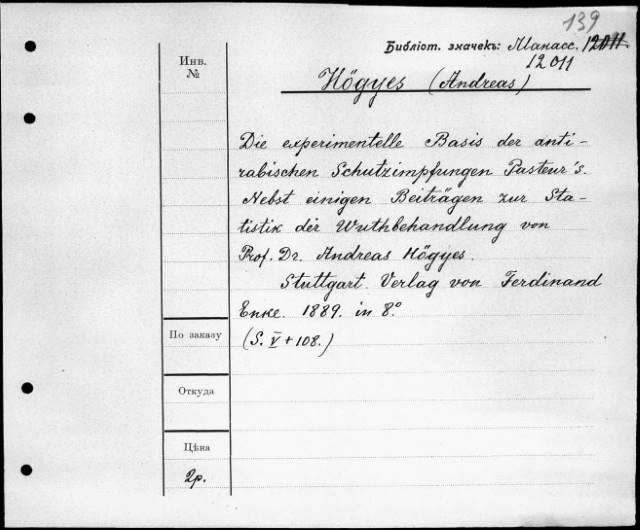 139
Библіот. значекъ: Манасс. 12011
Инв.
№
12011
Högyes (Andreas)
Die experimentelle Basis der anti-
rabischen Schutzimpfungen Pasteur's.
Nebst einigen Beiträgen zur Sta-
tistik der Wuthbehandlung von
Prof. Dr. Andreas Högyes.
Stuttgart. Verlag von Ferdinand
Enke. 1889. in 8.°
(S. V + 108.)
По заказу
Откуда
Цѣна
2р.